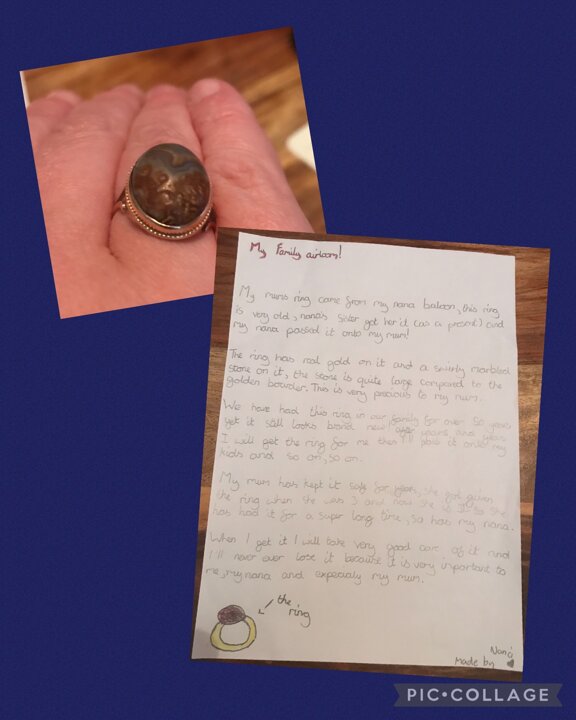 My Family airloom!
My mums ring came from my nana baloon, this ring
is very old, nana's sister got her it (as a present) and
my nana passed it onto my mum!
The ring has real gold on it and a swirly marbled
stone on it, the stone is quite large compared to the
golden bowder. This is very precious to my mum.
We have had this ring in our family for over 50 years
yet it still looks brand new after years and years
I will get the ring for me then I'll pass it onto my
kids and so on, so on.
My mum has kept it safe for years, she got given
the ring when she was 3 and now she is so she
has had it for a super long time, so has my nana.
When I get it I will take very good care of it and
I'll never ever lose it because it is very important to
me, my nana and expecialy my mum.
the
ring
Made by
PIC•COLLAGE